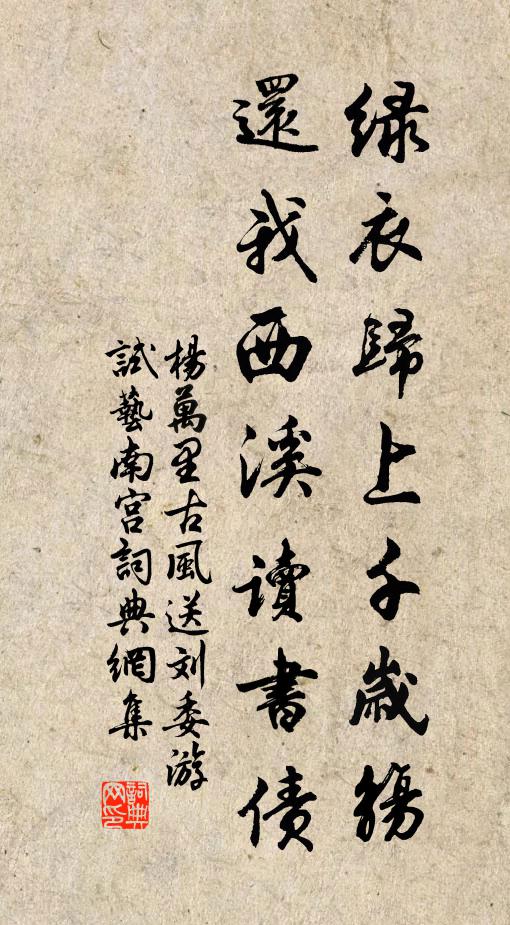 緑衣歸上千歲觴
還我西溪讀書債
楊萬里古風送刘委游
試藝南宫詞典網集
詞典网印